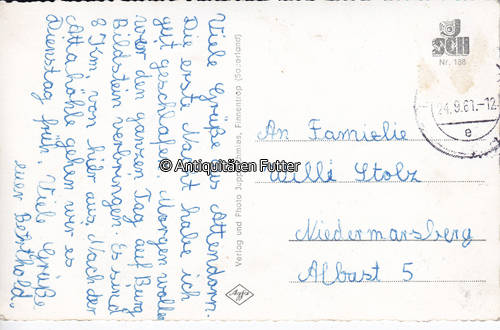 Viele Grüße aus Attendorn.
Die erste Nacht habe ich
gut geschlafen. Morgen wollen
wir den ganzen Tag auf Burg
Bildstein verbringen. Es sind
8 Km, von hier aus. Nach der
Attahöhle gehen wir es
Dienstag früh. Viele Grüße
euer Berthold.
Verlag und Photo Jupp Finnentrop (Sauerland)
SCH
Nr. 188
24.9.61.-12
e
An Familie
Willi Stolz
Niedermarsberg
Albast 5
Agfa
© Antiquitäten Futter